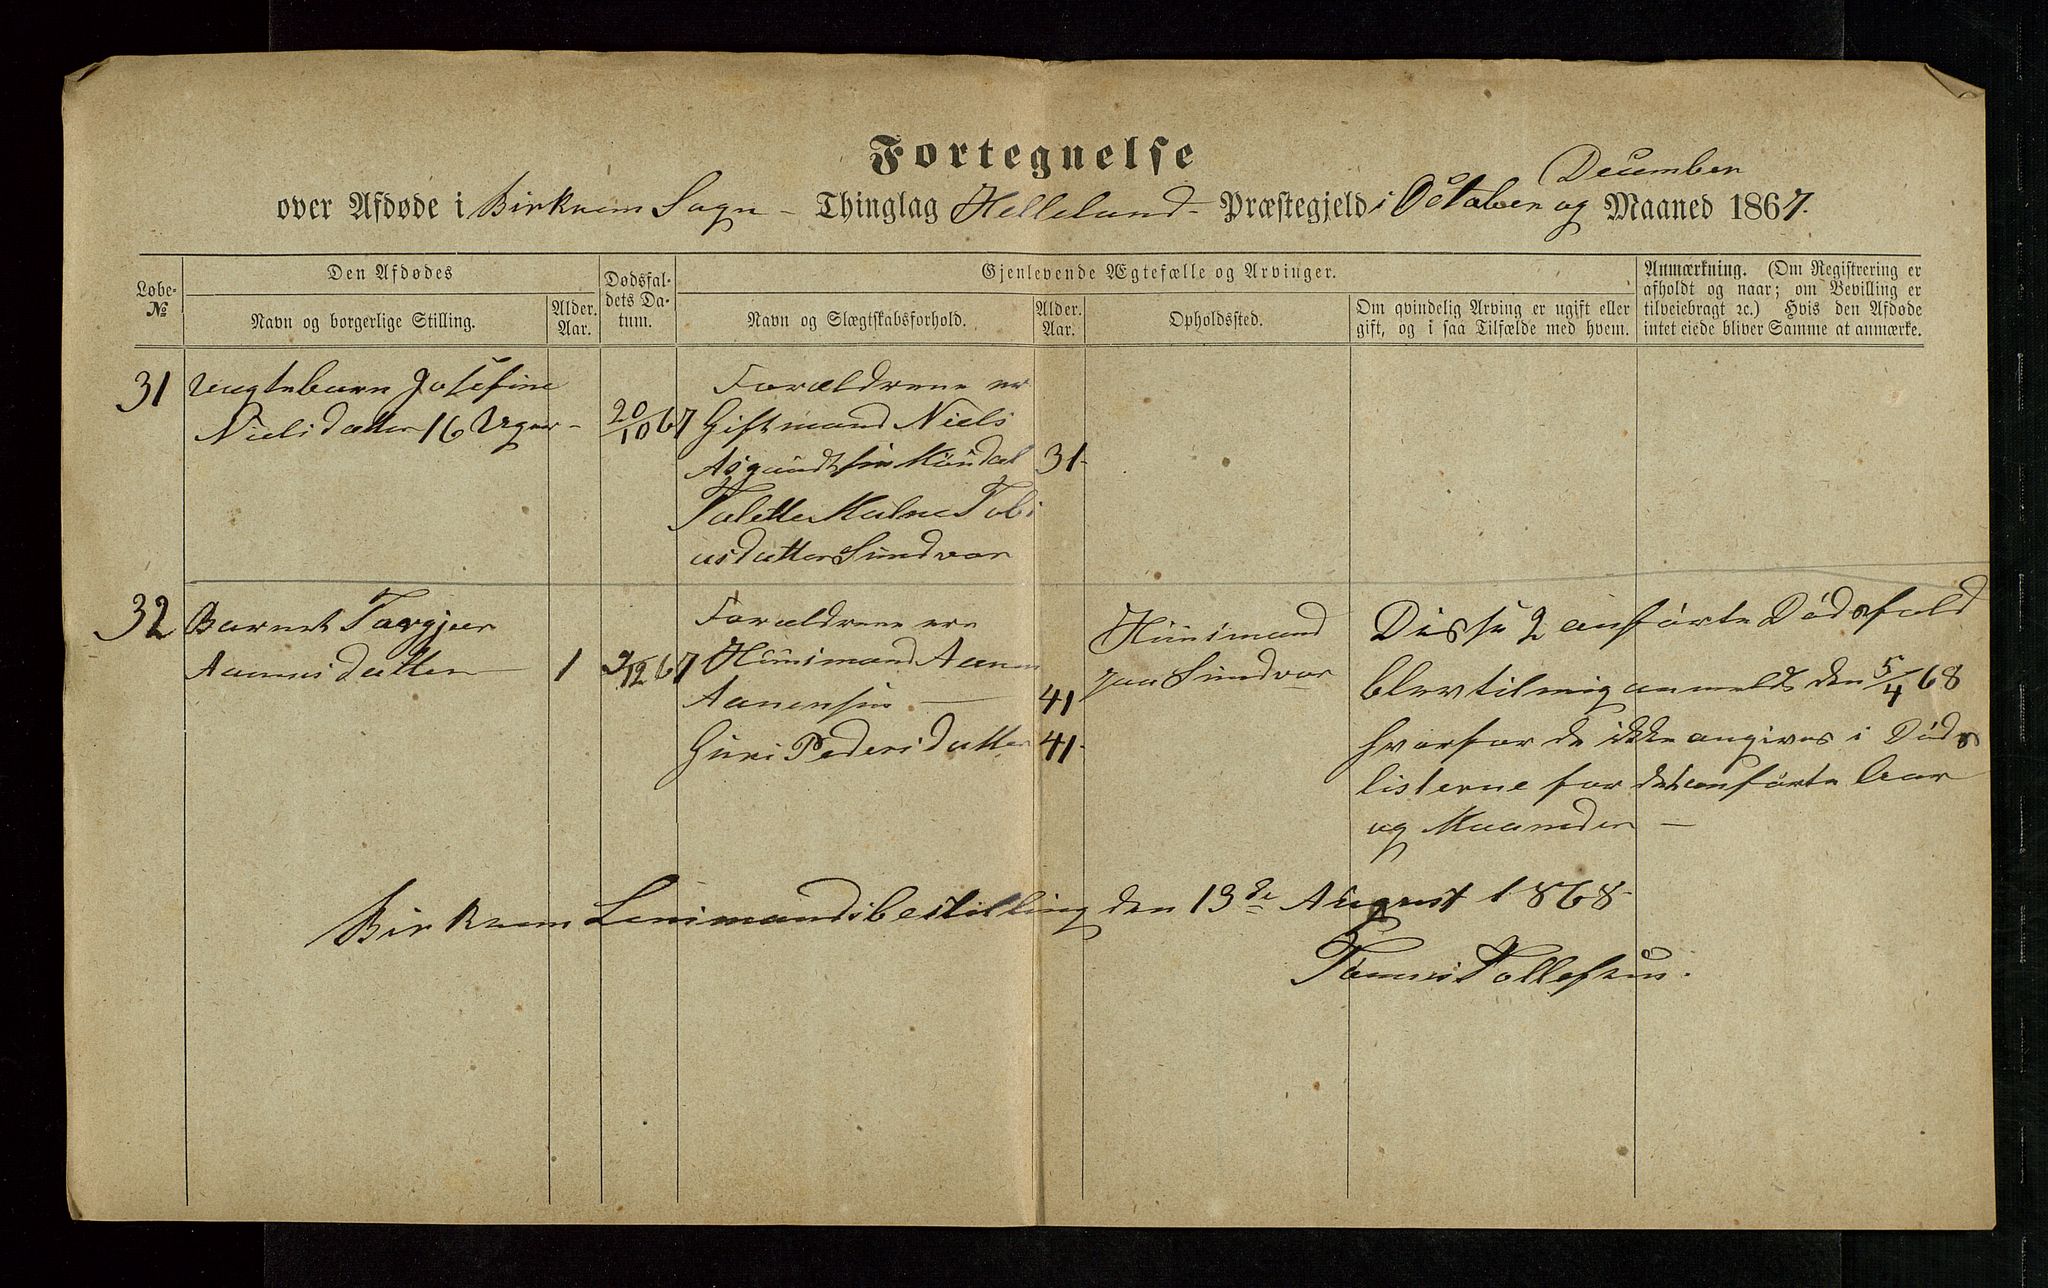 Fortegnelse
December
over Afdøde i Birkrem Sogn - Thinglag Helleland - Præstegjeld i October og Maaned 1867.
Løbe-
№
Den Afdødes
Navn og borgerlige Stilling.
Alder.
Aar.
Dødsfal-
dets Da-
tum.
Gjenlevende Ægtefælle og Arvinger.
Navn og Slægtskabsforhold.
Alder.
Aar.
Opholdssted.
Om qvindelig Arving er ugift eller
gift, og i saa Tilfælde med hvem.
Anmærkning. (Om Registrering er
afholdt og naar; om Bevilling er
tilveiebragt ꝛc.) Hvis den Afdøde
intet eiede bliver Samme at anmærke.
31 uægtebarn Josefine
Nielsdatter 16 Uger -
20/10 67
Forældrene er
Giftmand Niels
Asgautsen 31-
Talette Malne Tobi
asdatter Sundvor
32 Barnet Torgjer
Aanensdatter 1
2/12 67
Forældrene ere
Huusmand Aanen
Aanensen - 41
Guri Pedersdatter 41-
Huusmand
paa Sundvor
Disse 2 anførte Dødsfald
blev til mig anmeldt den 5/4 68
hvorfor de ikke angives i Døds
listerne for det anførte Aar
og Maaneder -
Birkrem Lensmandsbestilling den 13de August 1868-
Tønnes Tollefsen.